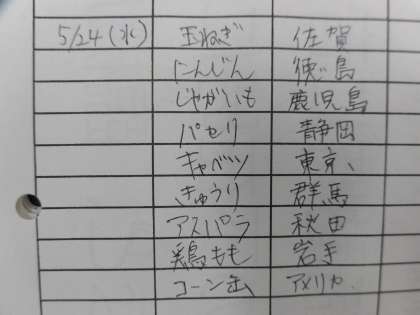 5/24(水) 玉ねぎ 佐賀
にんじん 徳島
じゃがいも 鹿児島
パセリ 静岡
キャベツ 東京、
きゅうり 群馬
アスパラ 秋田
鶏もも 岩手
コーン缶 アメリカ